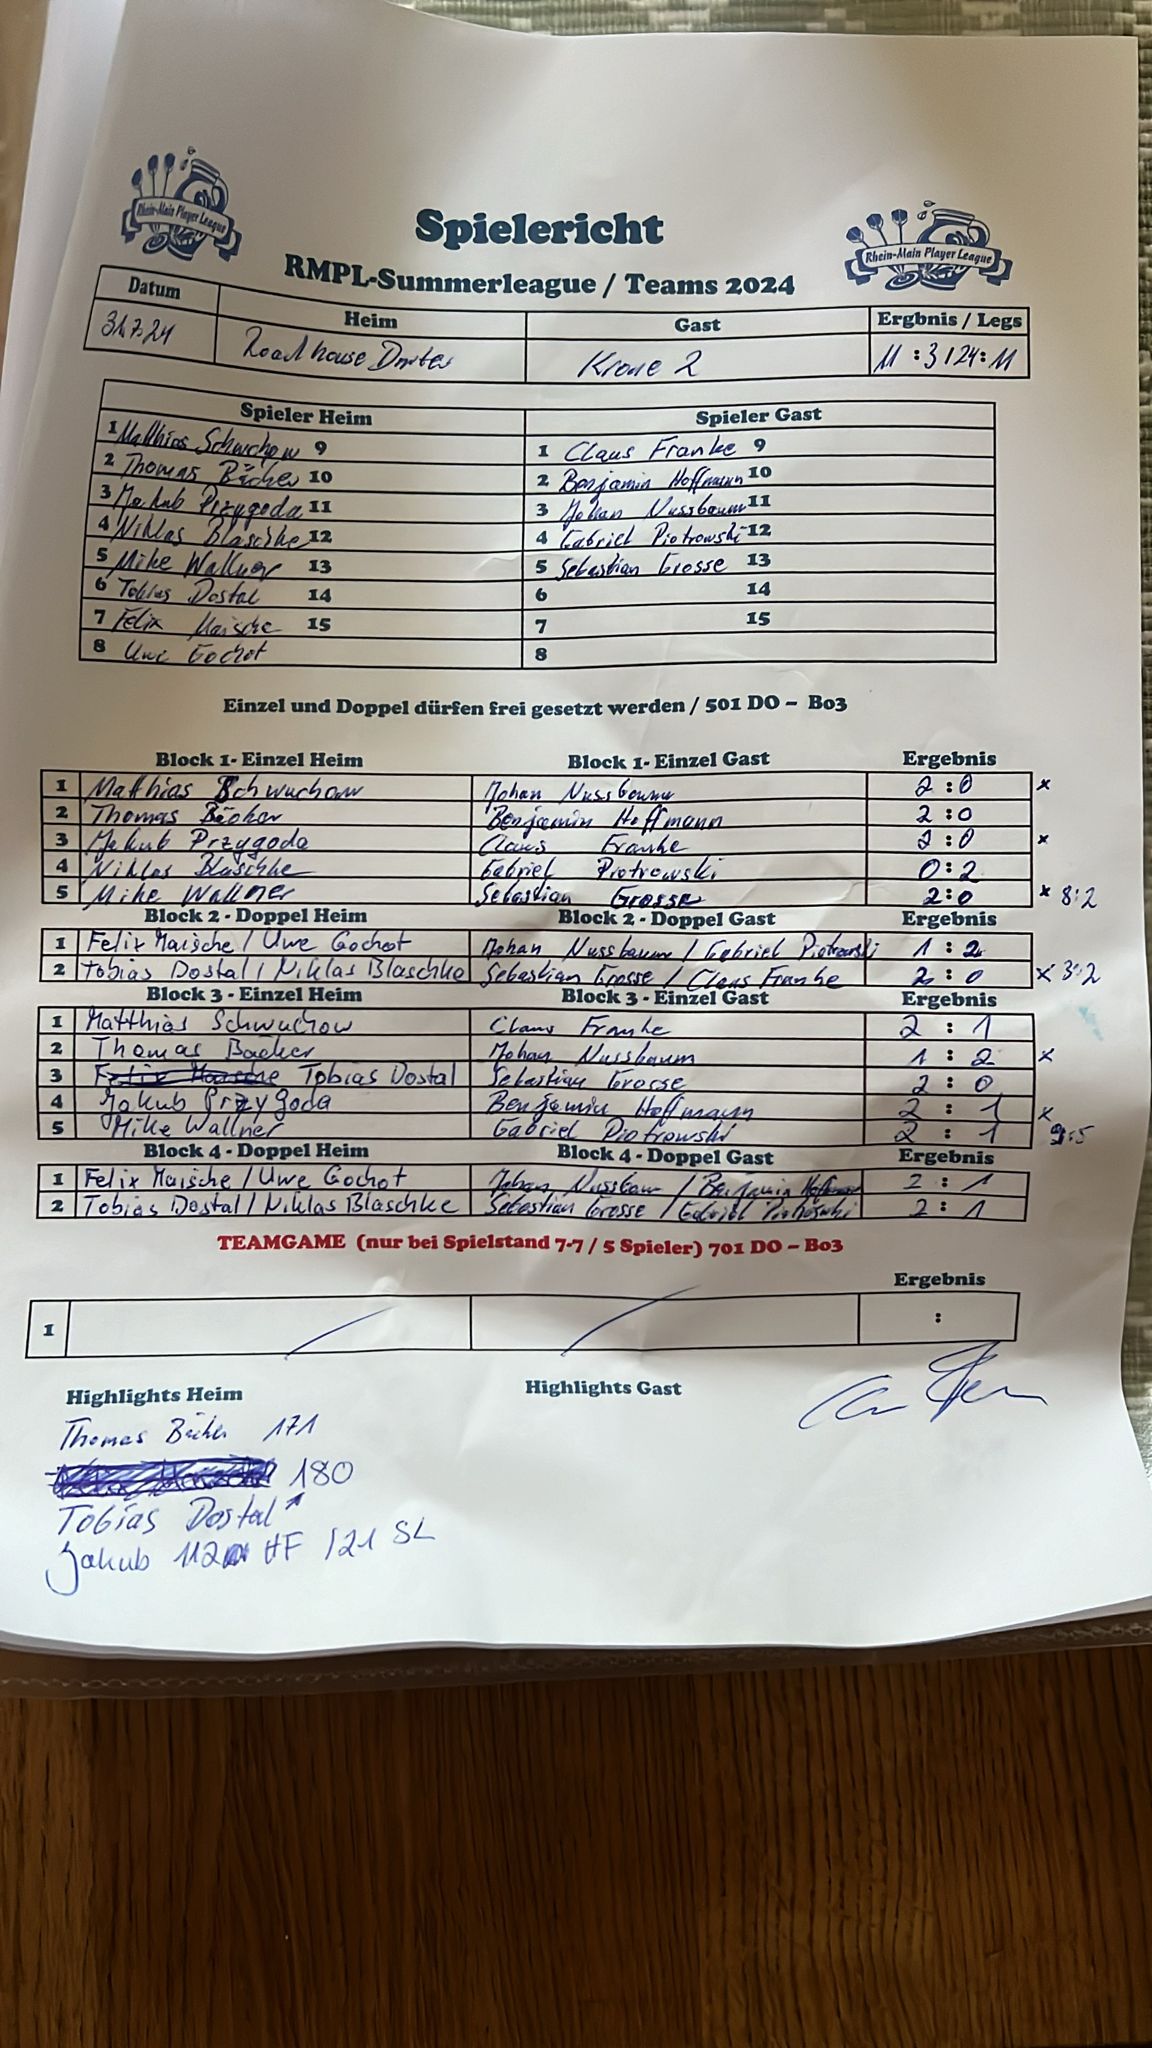 Rhein-Main Player League
Spielericht
Rhein-Main Player League
RMPL-Summerleague / Teams 2024
Datum Heim Gast Ergbnis / Legs
31.7.24 Roadhouse Darter Krone 2 11 : 3 / 24 : 11
Spieler Heim Spieler Gast
1 Matthias Schwuchow 9 1 Claus Franke 9
2 Thomas Bäcker 10 2 Benjamin Hoffmann 10
3 Jakub Przygoda 11 3 Johan Nussbaum 11
4 Niklas Blaschke 12 4 Gabriel Piotrowski 12
5 Mike Wallner 13 5 Sebastian Grosse 13
6 Tobias Dostal 14 6 14
7 Felix Maische 15 7 15
8 Uwe Gochot 8
Einzel und Doppel dürfen frei gesetzt werden / 501 DO – Bo3
Block 1- Einzel Heim Block 1- Einzel Gast Ergebnis
1 Matthias Schwuchow Johan Nussbaum 2 : 0 x
2 Thomas Bäcker Benjamin Hoffmann 2 : 0
3 Jakub Przygoda Claus Franke 2 : 0 x
4 Niklas Blaschke Gabriel Piotrowski 0 : 2
5 Mike Wallner Sebastian Grosse 2 : 0 x 8:2
Block 2 - Doppel Heim Block 2 - Doppel Gast Ergebnis
1 Felix Maische / Uwe Gochot Johan Nussbaum / Gabriel Piotrowski 1 : 2
2 Tobias Dostal / Niklas Blaschke Sebastian Grosse / Claus Franke 2 : 0 x 3:2
Block 3 - Einzel Heim Block 3 - Einzel Gast Ergebnis
1 Matthias Schwuchow Claus Franke 2 : 1
2 Thomas Bäcker Johan Nussbaum 1 : 2 x
3 Felix Maische Tobias Dostal Sebastian Grosse 2 : 0
4 Jakub Przygoda Benjamin Hoffmann 2 : 1 x
5 Mike Wallner Gabriel Piotrowski 2 : 1 9:5
Block 4 - Doppel Heim Block 4 - Doppel Gast Ergebnis
1 Felix Maische / Uwe Gochot Johan Nussbaum / Benjamin Hoffmann 2 : 1
2 Tobias Dostal / Niklas Blaschke Sebastian Grosse / Gabriel Piotrowski 2 : 1
TEAMGAME (nur bei Spielstand 7-7 / 5 Spieler) 701 DO – Bo3
Ergebnis
1 :
Highlights Heim Highlights Gast
Thomas Bäcker 171
180
Tobias Dostal
Jakub 112 HF / 21 SL